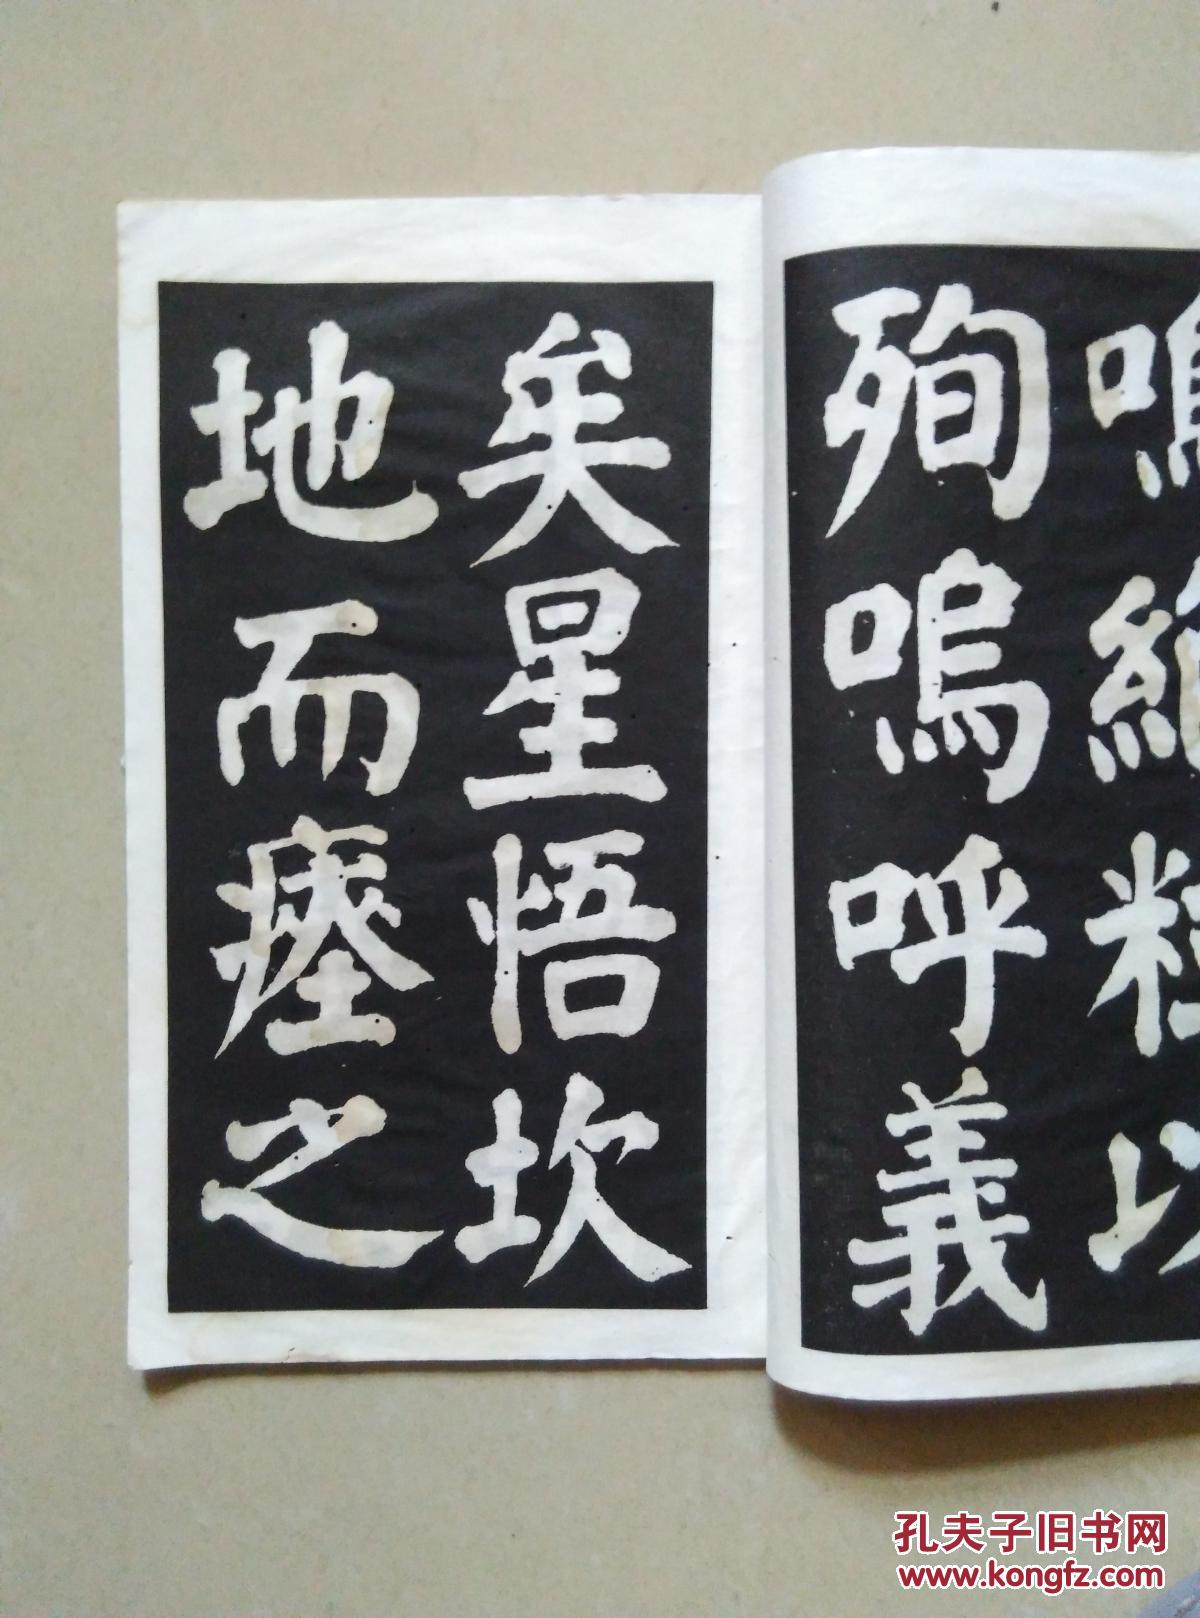 鳴絶粒以
殉嗚呼義
矣星悟坎
地而瘞之
孔夫子旧书网
www.kongfz.com